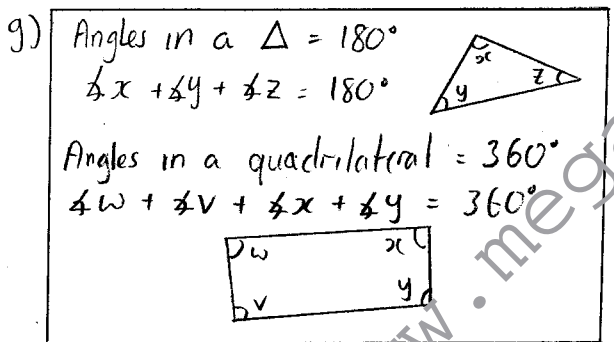 g) Angles in a Δ = 180°
∡x + ∡y + ∡z = 180°
x
z
y
Angles in a quadrilateral = 360°
∡w + ∡v + ∡x + ∡y = 360°
w x
v y
w.mega